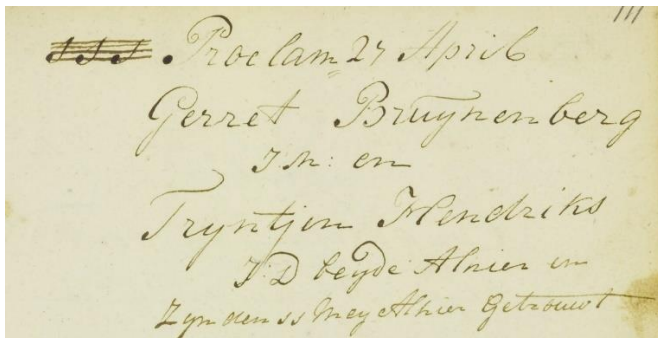 111
Proclam 27 April
Gerret Bruynenberg
J M: en
Tryntjen Hendriks
J:D beyde Alhier en
Zyn den Mey Alhier Getrouwt